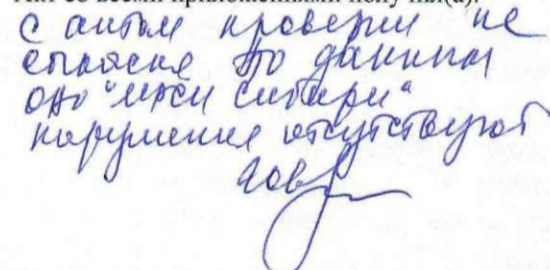 Акт со всеми приложениями получил(а):
с актом проверки не
согласие по данным
ОАО "ИЖСИ Сибири"
нарушения отсутствуют